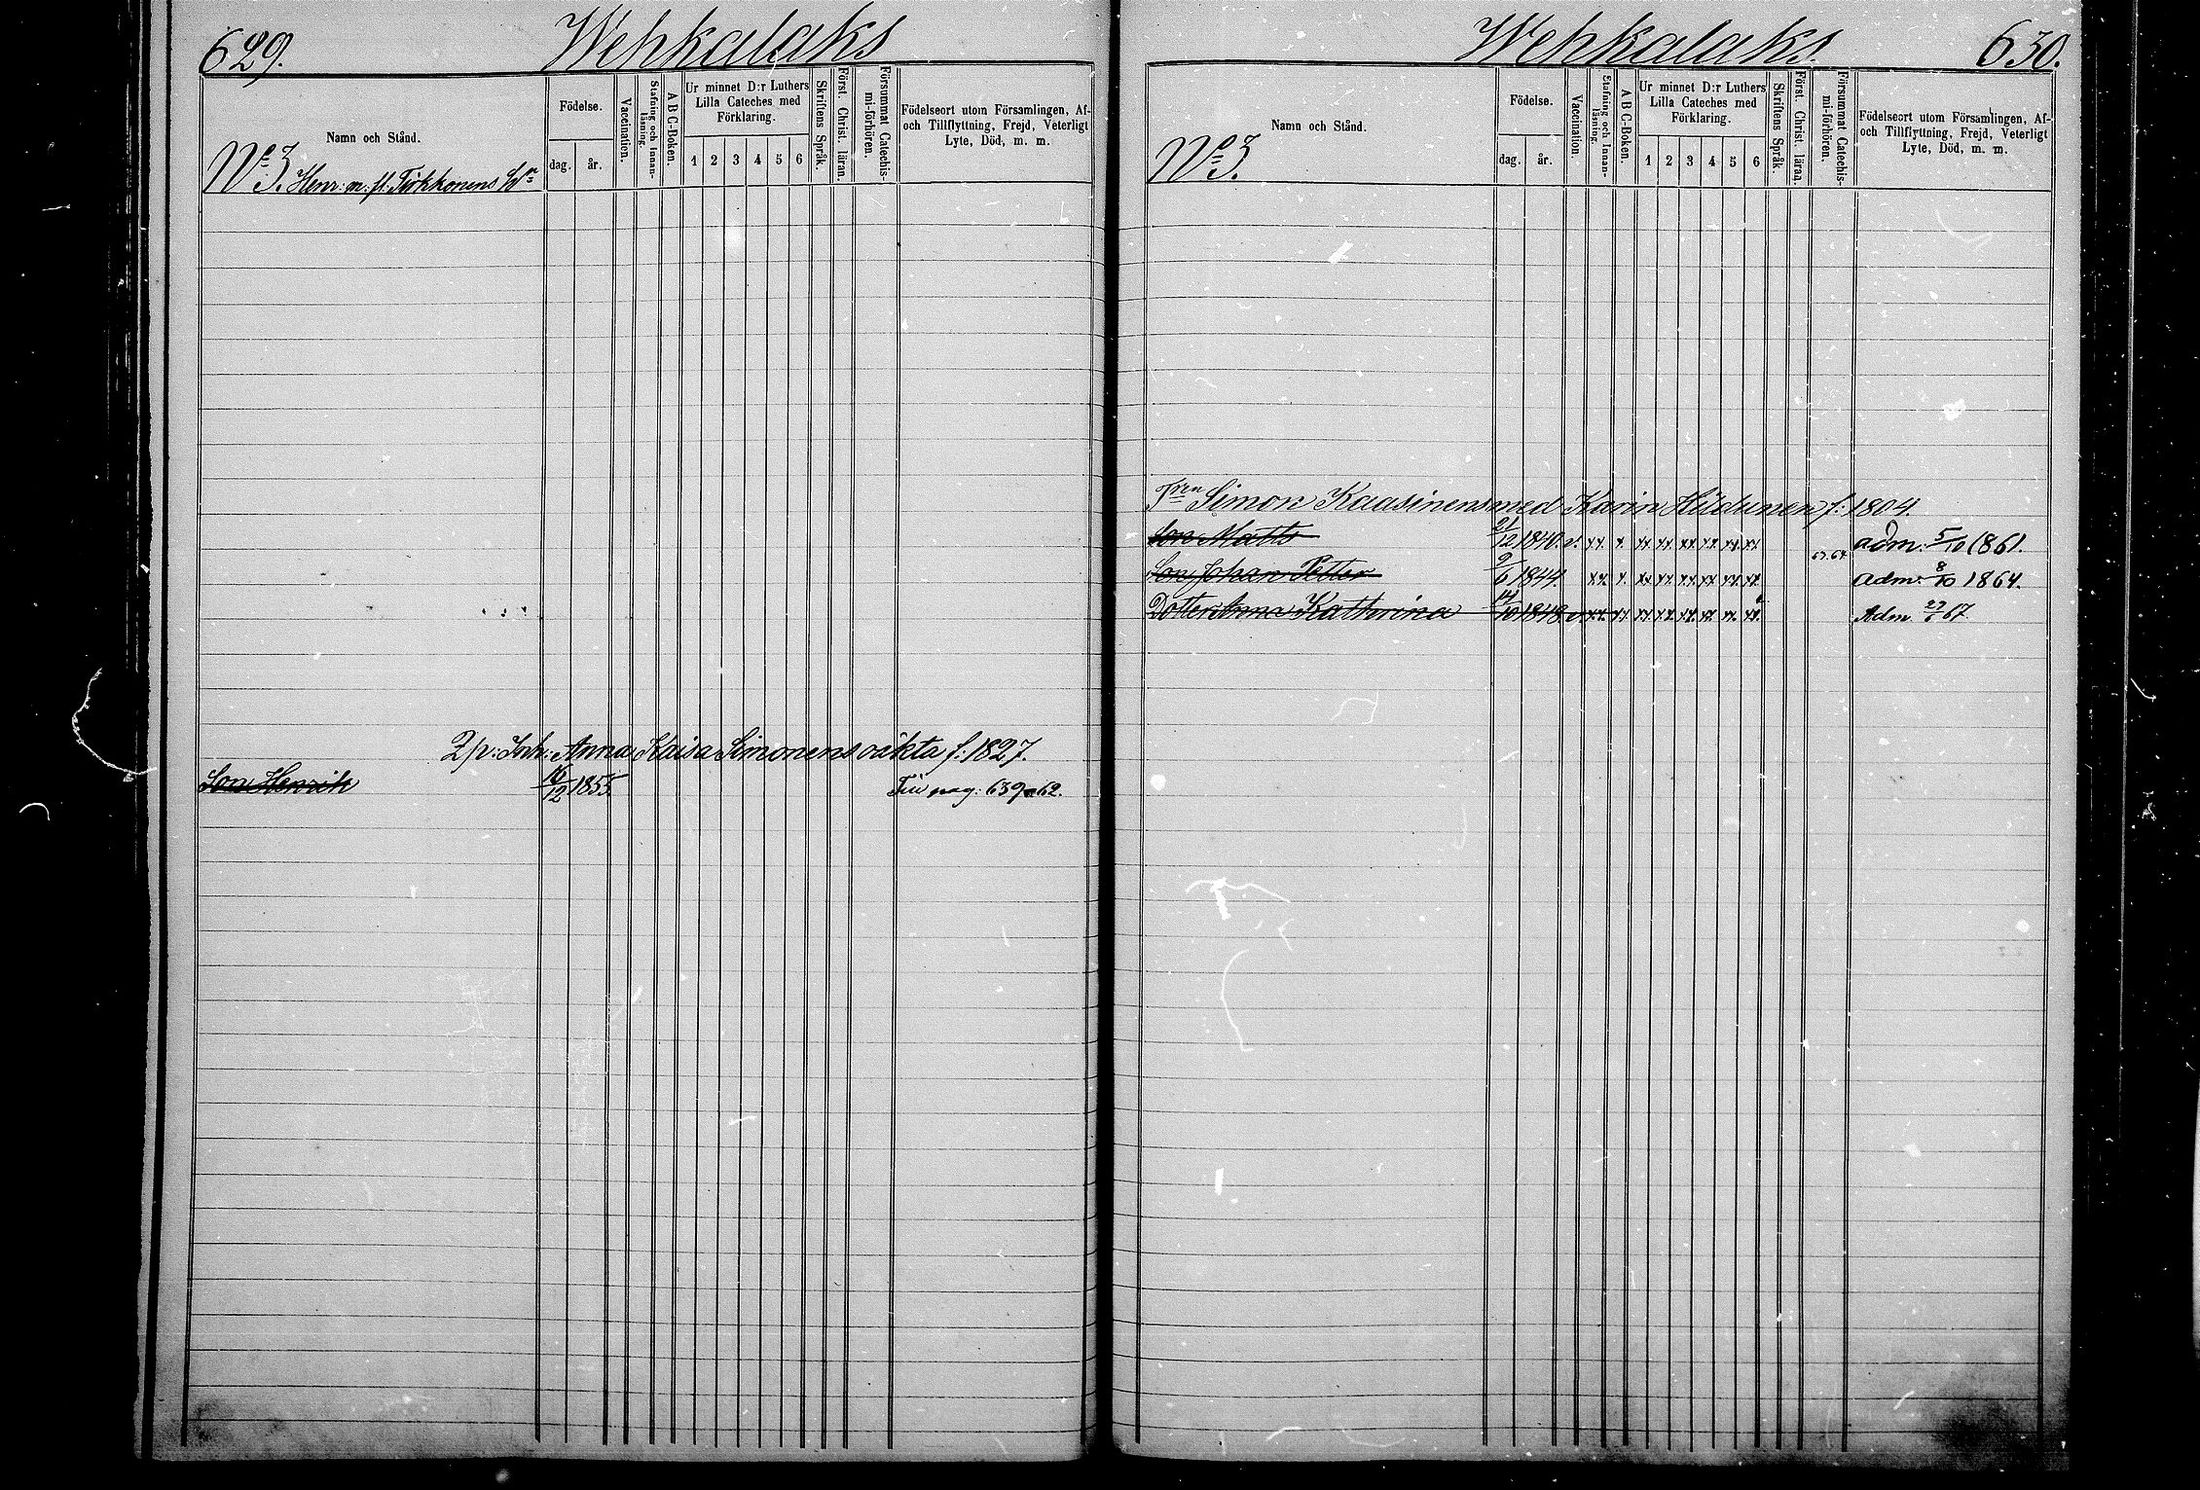 629. Wehkalaks
Namn och Stånd.
Födelse.
dag. år.
Vaccination.
Stafning och Innan-läsning.
A B C-Boken.
Ur minnet D:r Luthers
Lilla Cateches med
Förklaring.
1 2 3 4 5 6
Skriftens Språk.
Först. Christ. läran.
Försummat Catechis-mi-förhören.
Födelseort utom Församlingen, Af-
och Tillflyttning, Frejd, Veterligt
Lyte, Död, m. m.
No 3. Henr: m. fl. Tirkkonens
Anna Kaisa Simonens oäkta f: 1827.
Son Henrik 16/12 1855. pag: 639 62.
Wehkalaks. 630.
Namn och Stånd.
Födelse.
dag. år.
Vaccination.
Stafning och Innan-läsning.
A B C-Boken.
Ur minnet D:r Luthers
Lilla Cateches med
Förklaring.
1 2 3 4 5 6
Skriftens Språk.
Först. Christ. läran.
Försummat Catechis-mi-förhören.
Födelseort utom Församlingen, Af-
och Tillflyttning, Frejd, Veterligt
Lyte, Död, m. m.
No 3.
Simon Kaasinens med Karin Hildunen f: 1804.
Son Matts 21/12 1840. v. xx x xx xx xx xx xx xx adm: 5/10 1861.
Son Johan Petter 9/6 1844. xx x xx xx xx xx xx xx 63.64 adm: 8/10 1864.
Dotter Anna Kathrina 14/10 1848 v. xx xx xx xx xx xx xx xx Adm 23/6 67.